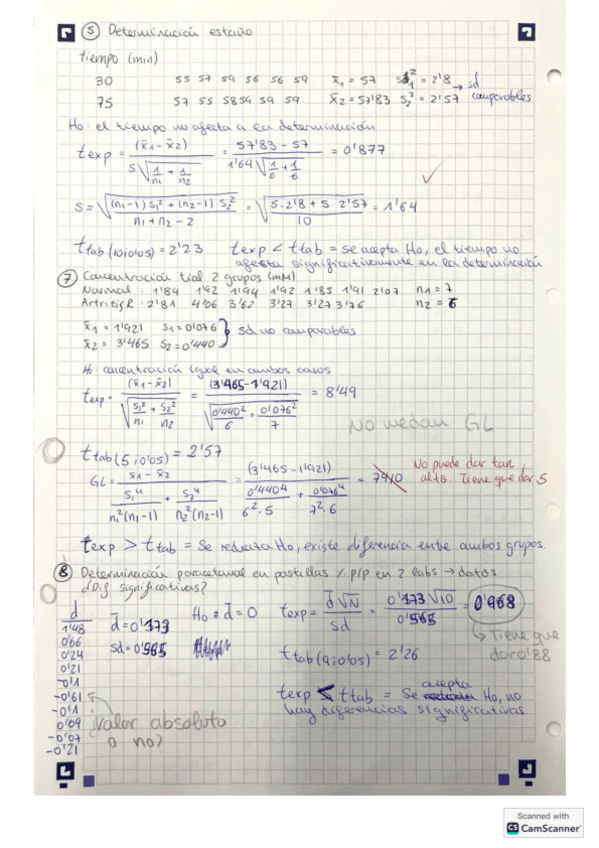 ⑤ Determinación estaño
tiempo (min)
30 55 57 59 56 56 59 x̄1 = 57 s1² = 2'8 → sd
75 57 55 58 59 59 59 x̄2 = 57'83 s2² = 2'57 comparables
Ho: el tiempo no afecta a la determinación
texp = (x̄1 - x̄2) / s√(1/n1 + 1/n2) = 57'83 - 57 / 1'64 √(1/6 + 1/6) = 0'877 ✓
s = √((n1-1) s1² + (n2-1) s2² / n1 + n2 - 2) = √(5·2'8 + 5·2'57 / 10) = 1'64
ttab (10;0'05) = 2'23 texp < ttab = se acepta Ho, el tiempo no
afecta significativamente en la determinación
⑦ Concentración tial 2 grupos (mM)
Normal : 1'84 1'92 1'94 1'92 1'85 1'91 2'07 n1 = 7
Artritis R : 2'81 4'06 3'62 3'27 3'27 3'76 n2 = 6
x̄1 = 1'921 s1 = 0'076 } sd no comparables
x̄2 = 3'465 s2 = 0'440
Ho: concentración igual en ambos casos
texp = (x̄1 - x̄2) / √(s1²/n1 + s2²/n2) = (3'465 - 1'921) / √(0'440²/6 + 0'076²/7) = 8'49
No me dan GL
ttab (5;0'05) = 2'57
GL = x̄1 - x̄2 / (s1⁴/n1²(n1-1) + s2⁴/n2²(n2-1)) = (3'465 - 1'921) / (0'440⁴/6²·5 + 0'076⁴/7²·6) = No puede dar tan
alto Tiene que dar 5
texp > ttab = Se rechaza Ho, existe diferencia entre ambos grupos.
⑧ Determinación paracetamol en pastillas % p/p en 2 labs → datos
¿Dif significativas?
d
1'48
0'66
0'24
0'21
-0'1
-0'61
-0'1
0'09
-0'07
-0'21
d̄ = 0'173 Ho = d̄ = 0 texp = d̄√N / sd = 0'173 √10 / 0'565 = 0'968
sd = 0'565
↳ Tiene que
dar 0'88
ttab (9;0'05) = 2'26
texp < ttab = Se acepta Ho, no
hay diferencias significativas
¿valor absoluto
o no?
Scanned with
CS CamScanner